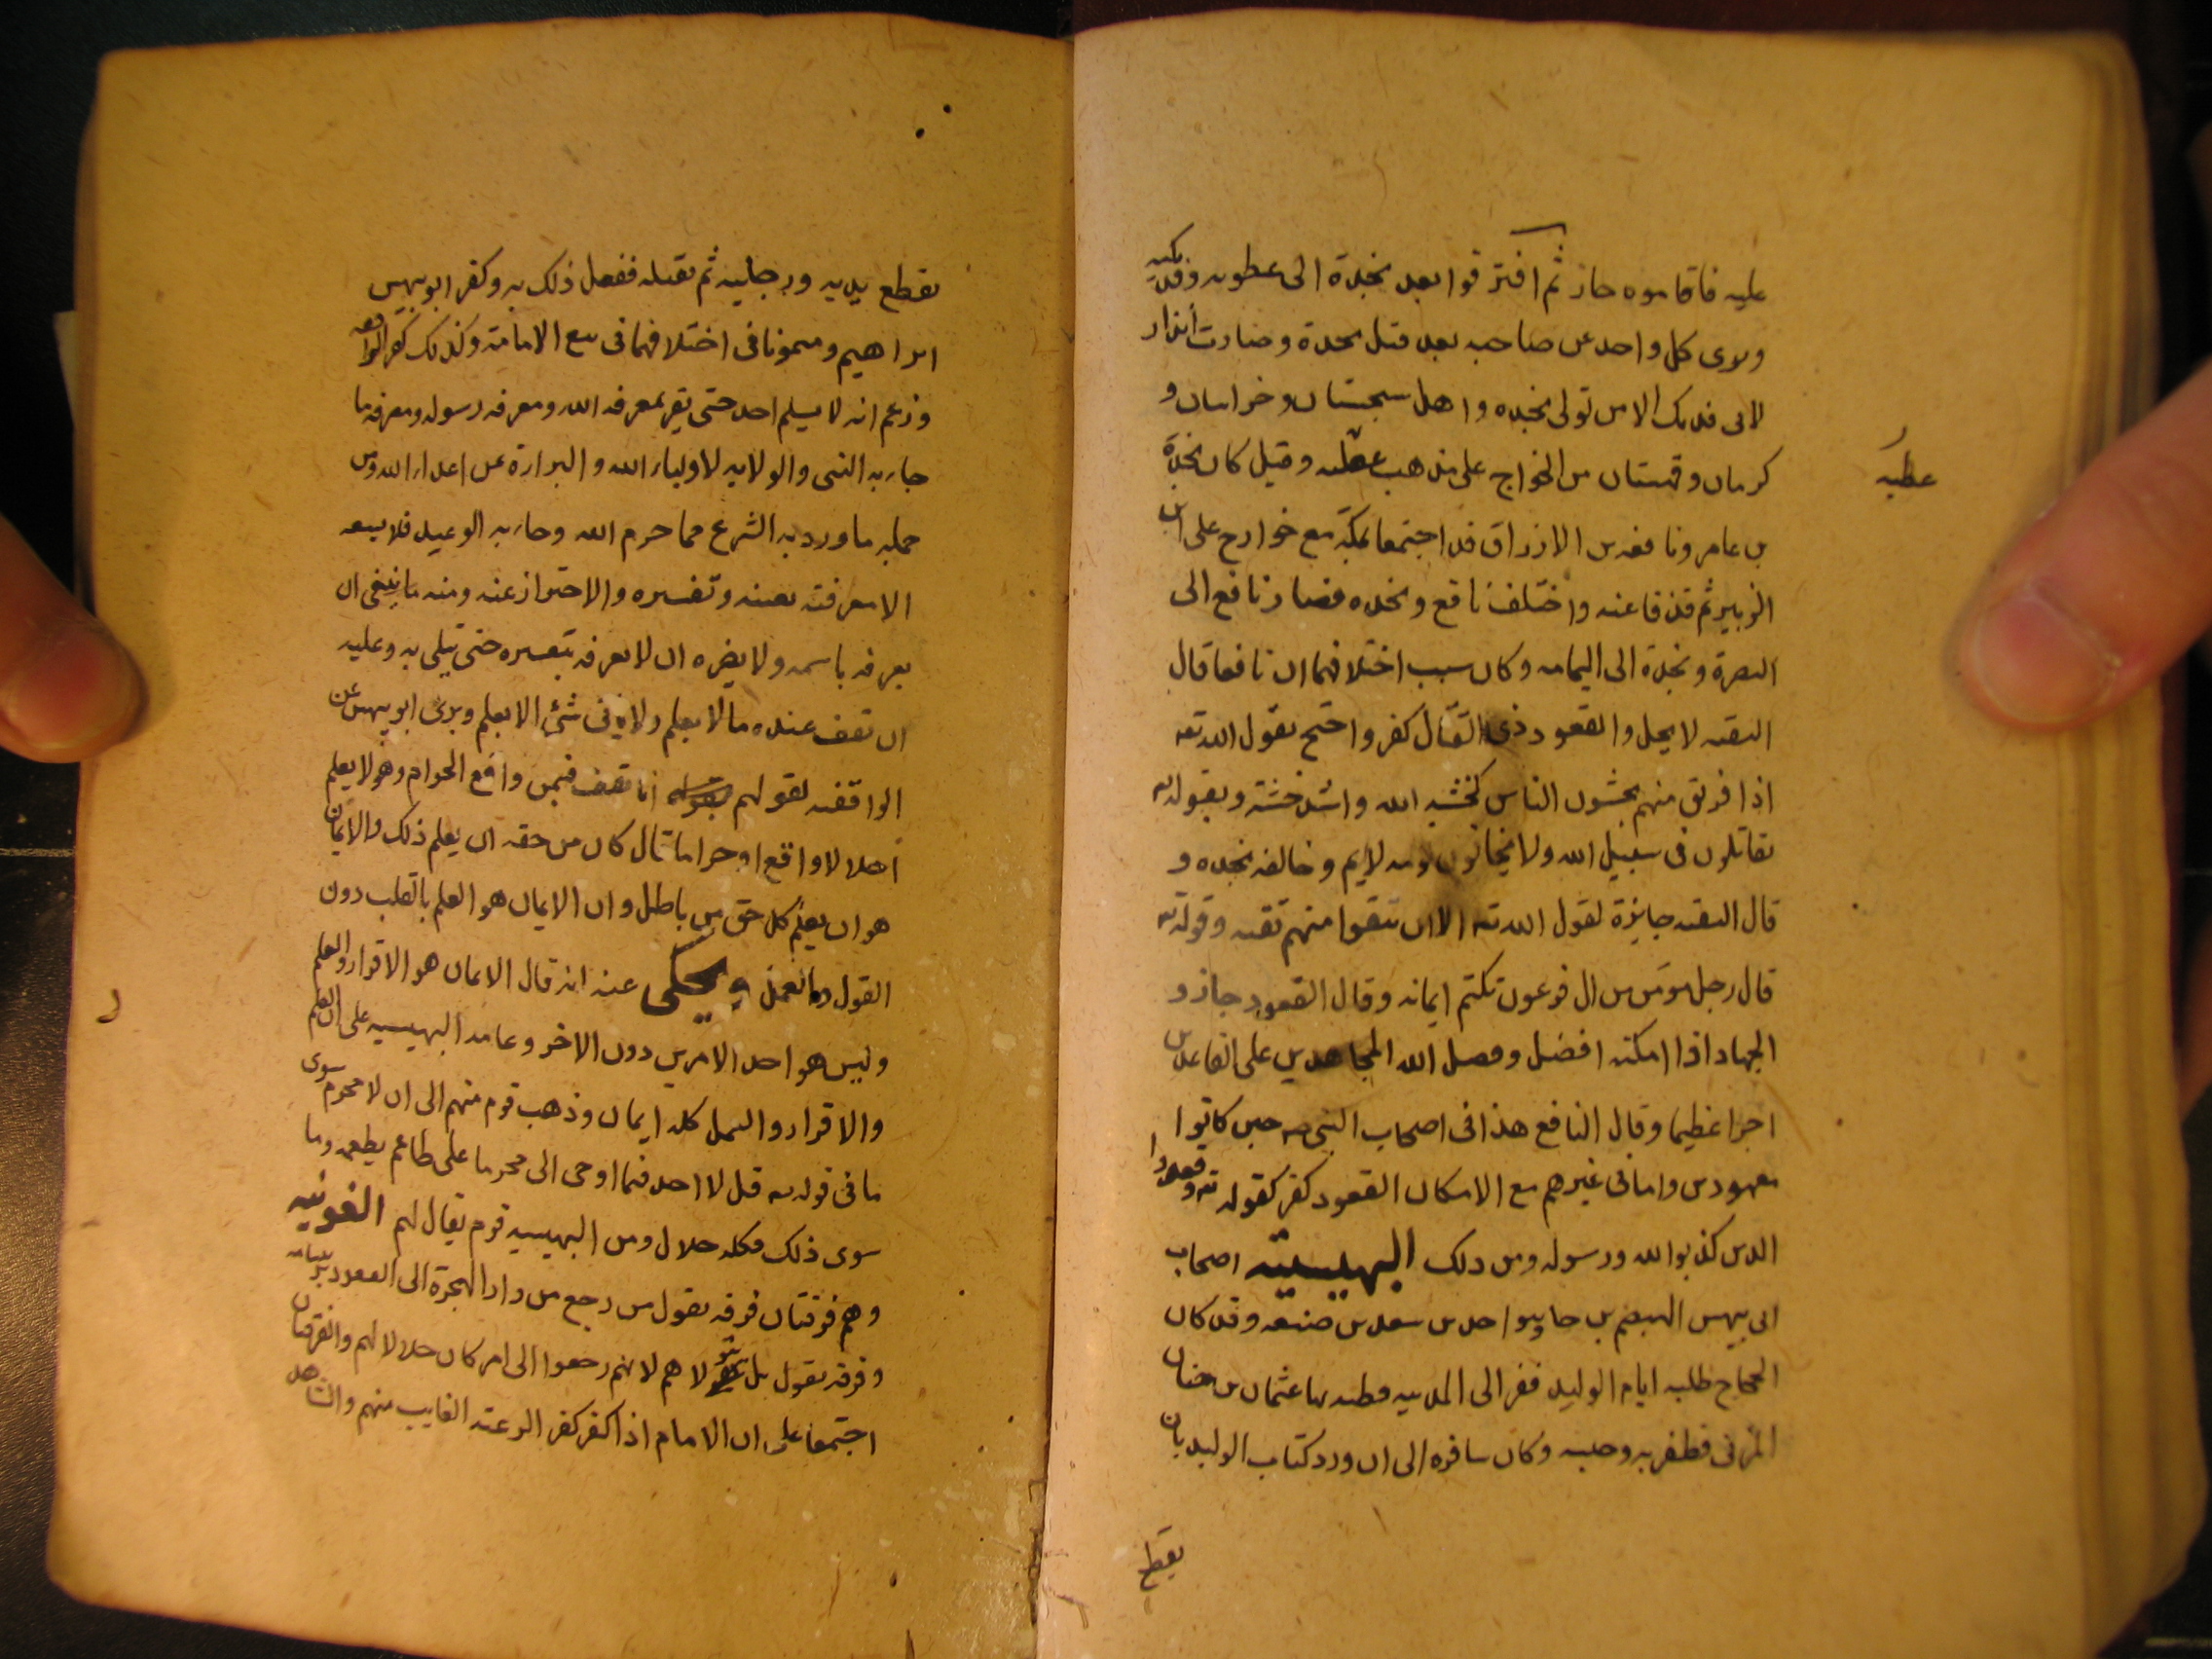 عليه فاقاموه جاز ثم افترقوا بعد نجدة الى عطويه وفديكيه
وبرى كل واحد عن صاحبه بعد قتل نجدة وصارت الدار
لابى فديك الا من تولى نجده واهل سجستان وخراسان و
كرمان وقهستان من الخوارج على مذهب عطيه وقيل كان نجدة
عطيه
بن عامر ونافع بن الازراق قد اجتمعا بمكة مع خوارج على ابن
الزبير ثم تفرقا عنه واختلف نافع ونجده فصار نافع الى
البصرة ونجدة الى اليمامه وكان سبب اختلافهما ان نافعا قال
التقيه لا يحل والقعود ذى القتال كفر واحتج بقول الله تعه
اذا فريق منهم يخشون الناس كخشيه الله واشد خشية وبقوله تعه
يقاتلون فى سبيل الله ولا يخافون لومه لايم وخالفه نجده و
قال التقيه جايزة لقول الله تعه الا ان تتقوا منهم تقيه وقوله تعه
قال رجل مومن من ال فرعون يكتم ايمانه وقال القعود جاز و
الجهاد اذا امكنه افضل وفضل الله المجاهدين على القاعدين
اجرا عظيما وقال النافع هذا فى اصحاب النبى صه حين كانوا
مقهورين واما فى غيرهم مع الامكان القعود كفر كقوله تعه وقعد
الذين كذبوا الله ورسوله ومن ذلك البهيسيه اصحاب
ابى بيهس الهيصم بن جابر احد بن سعد بن ضبعه وقد كان
الحجاج طلبه ايام الوليد ففر الى المدينه فطلبه بها عثمان بن حنان
المزنى فظفر به وحبسه وكان سافره الى ان ورد كتاب الوليد بان
يقطع
يقطع يديه ورجليه ثم يقتله ففعل ذلك به وكفر ابو بيهس
ابراهيم وميمونا فى اختلافهما فى بيع الامامة وكذلك كفر الواقفه
وزعم انه لا يسلم احد حتى يقر بمعرفه الله ومعرفه رسوله ومعرفه ما
جاء به النبى والولايه لاولياء الله والبراءة عن اعداء الله ومن
جمله ما ورد به الشرع مما حرم الله وجاء به الوعيد فلا يسعه
الا معرفته بعينه وتفسيره والاحتراز عنه ومنه ما ينبغى ان
يعرفه باسمه ولا يضره ان لا يعرفه بتفسيره حتى يبتلى به وعليه
ان يقف عنده ما لا يعلم ولا ياتى شئ الا بعلم وبرى ابو بيهس عن
الواقفه لقولهم انا نقف فيمن واقع الحرام وهو لا يعلم
احلالا واقع او حراما قال كان من حقه ان يعلم ذلك والايمان
هو ان يعلم كل حق من باطل وان الايمان هو العلم بالقلب دون
القول والعمل ويحكى عنه انه قال الايمان هو الاقرار والعلم
وليس هو احد الامرين دون الاخر وعامه البهيسيه على ان العلم
والاقرار والعمل كله ايمان وذهب قوم منهم الى ان لا محرم سوى
ما فى قوله تعه قل لا اجد فيما اوحى الى محرما على طاعم يطعمه وما
سوى ذلك فكله حلال ومن البهيسيه قوم يقال لهم العونيه
وهم فرقتان فرقه تقول من رجع من دار الهجرة الى القعود برئنا منه
وفرقه تقول بل نتولاهم لانهم رجعوا الى امر كان حلالا لهم والفرقتان
اجتمعا على ان الامام اذا كفر كفر الرعيه الغايب منهم والشاهد